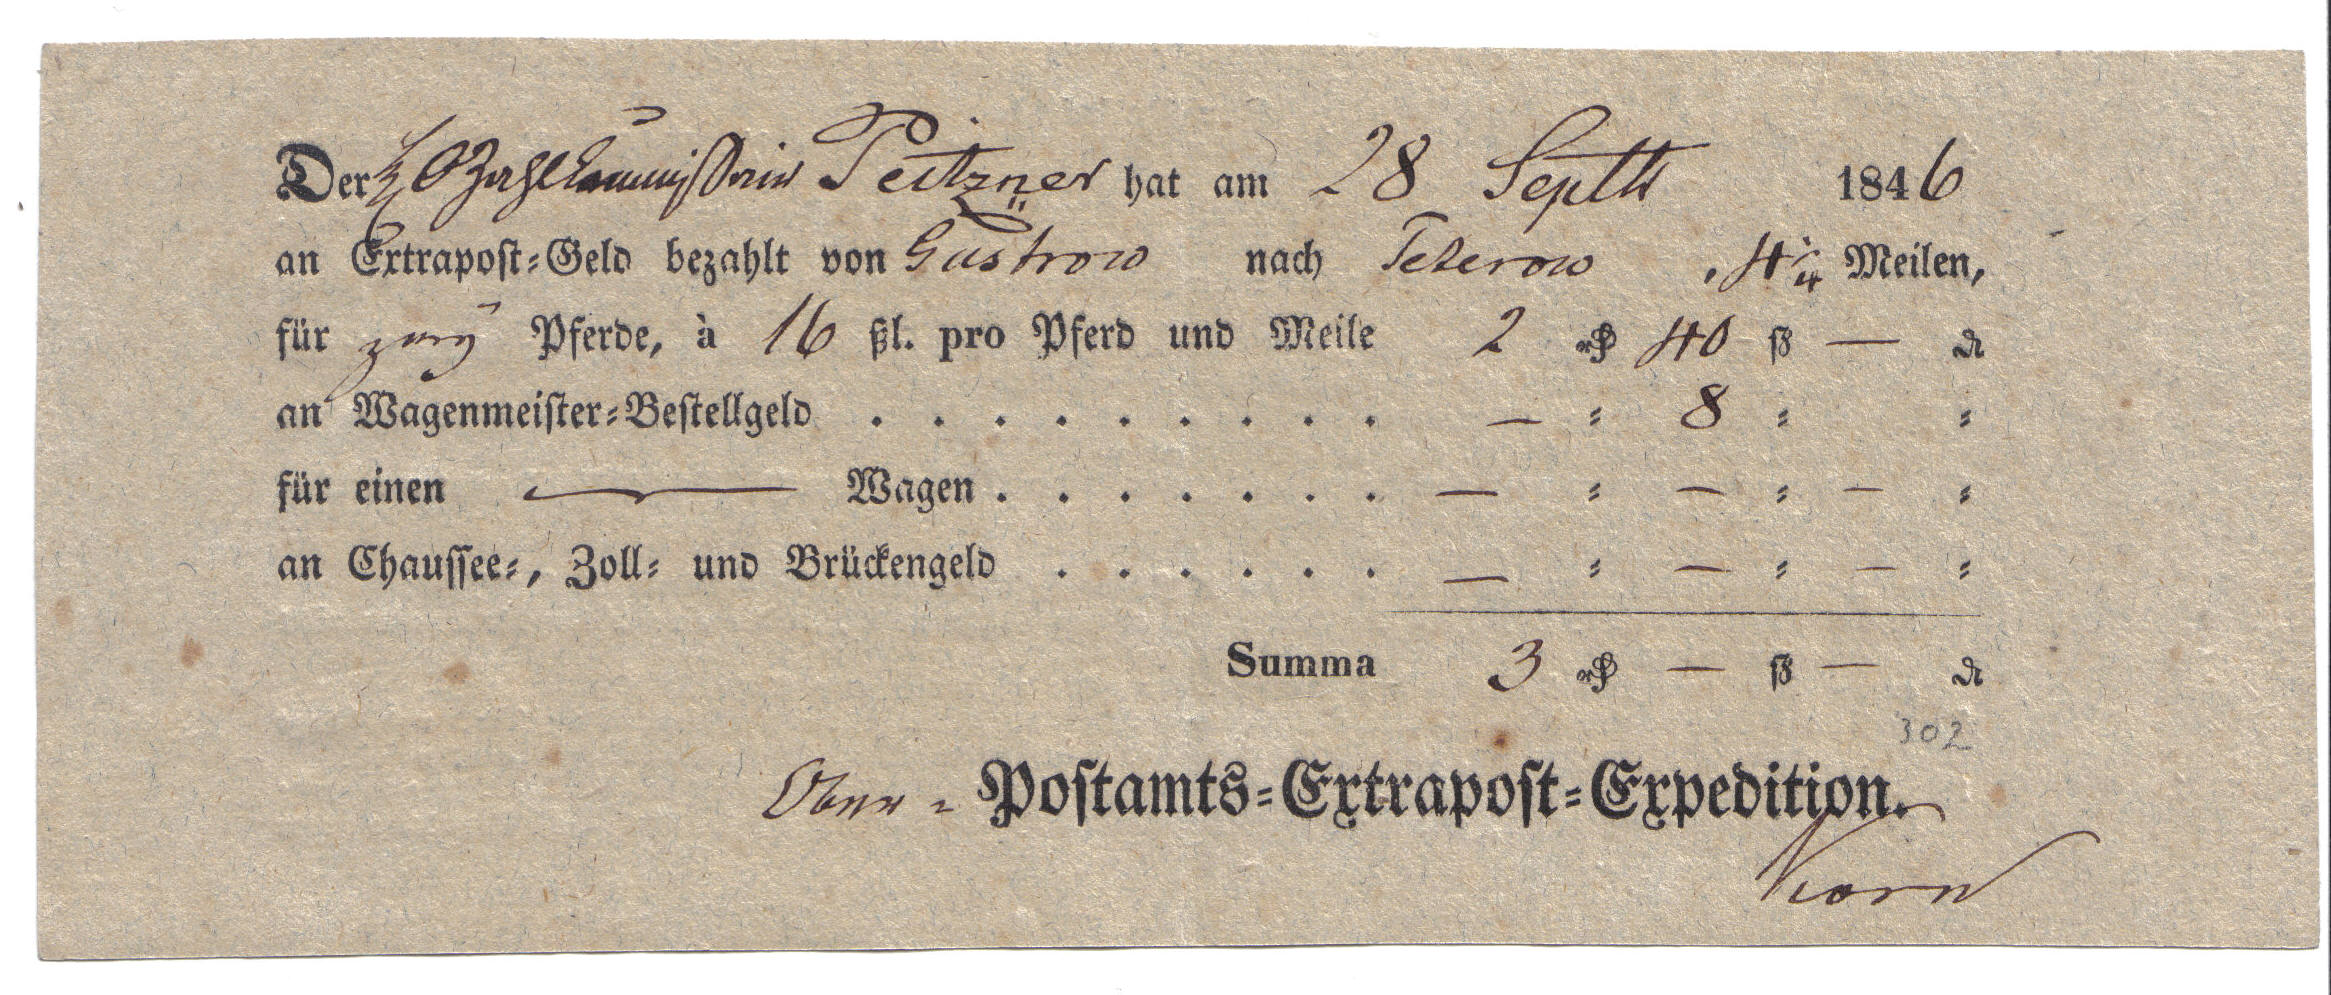 Der H. Ober Commissair Peitzner hat am 28 Septbr 1846
an Extrapoſt-Geld bezahlt von Gustrow nach Teterow, 4 1/4 Meilen,
für zwey Pferde, à 16 ßl. pro Pferd und Meile 2 Rthlr 40 ßl — ₰
an Wagenmeiſter-Beſtellgeld . . . . . . . . . — " 8 " "
für einen — Wagen . . . . . . . — " — " — "
an Chauſſee-, Zoll- und Brückengeld . . . . . . — " — " — "
Summa 3 Rthlr — ßl — ₰
302
Ober-Poſtamts-Extrapoſt-Expedition.
Korn